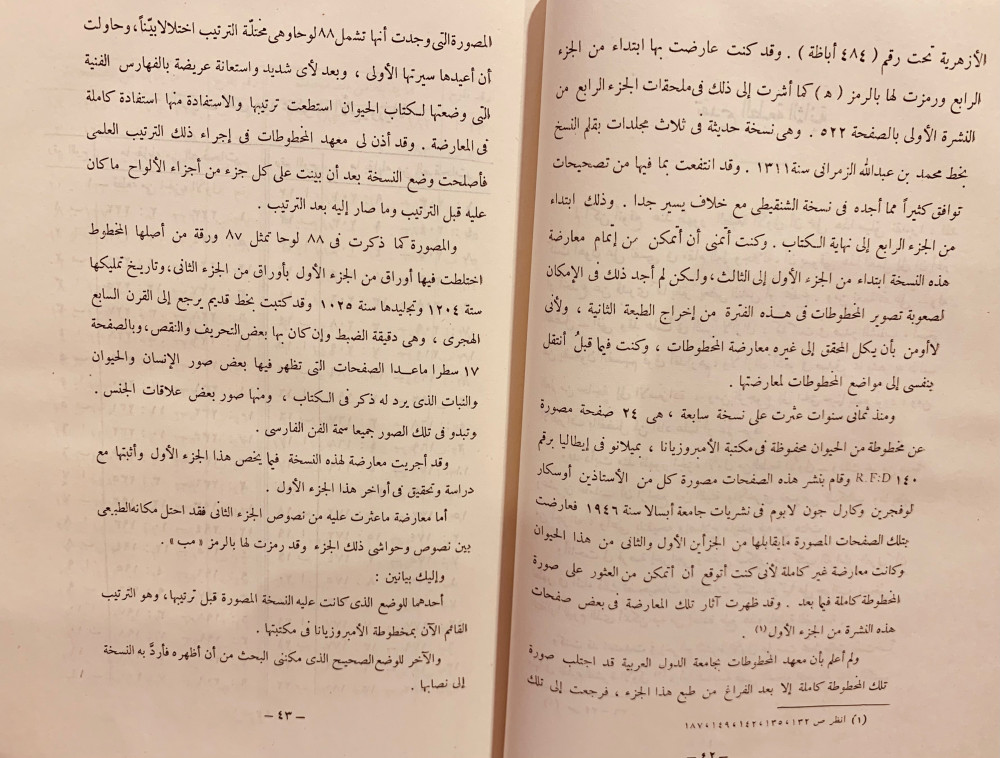 الأزهرية تحت رقم ( ٤٨٤ أباظة ) . وقد كنت عارضت بها ابتداء من الجزء
الرابع ورمزت لها بالرمز ( ه ) كما أشرت إلى ذلك فى ملحقات الجزء الرابع من
النشرة الأولى بالصفحة ٥٢٢ . وهى نسخة حديثة فى ثلاث مجلدات بقلم النسخ
بخط محمد بن عبدالله الزمرانى سنة ١٣١١ . وقد انتفعت بما فيها من تصحيحات
توافق كثيراً مما أجده فى نسخة الشنقيطى مع خلاف يسير جدا . وذلك ابتداء
من الجزء الرابع إلى نهاية الكتاب . وكنت أتمنى أن أتمكن من إتمام معارضة
هذه النسخة ابتداء من الجزء الأول إلى الثالث ، ولكن لم أجد ذلك فى الإمكان
لصعوبة تصوير المخطوطات فى هـــذه الفترة من إخراج الطبعة الثانية ، ولأنى
لاأومن بأن يكل المحقق إلى غيره معارضة المخطوطات ، وكنت فيما قبلُ أنتقل
بنفسى إلى مواضع المخطوطات لمعارضتها .
ومنذ ثمانى سنوات عثرت على نسخة سابعة ، هى ٢٤ صفحة مصورة
عن مخطوطة من الحيوان محفوظة فى مكتبة الأمبروزيانا ، بميلانو فى إيطاليا برقم
١٤٠ R.F:D وقام بنشر هذه الصفحات مصورة كل من الأستاذين أوسكار
لوفجرين وكارل جون لابوم فى نشريات جامعة أبسالا سنة ١٩٤٦ فعارضت
بتلك الصفحات المصورة مايقابلها من الجزأين الأول والثانى من هذا الحيوان
وكانت معارضة غير كاملة لأنى كنت أتوقع أن أتمكن من العثور على صورة
المخطوطة كاملة فيما بعد . وقد ظهرت آثار تلك المعارضة فى بعض صفحات
هذه النشرة من الجزء الأول (١) .
ولم أعلم بأن معهد المخطوطات بجامعة الدول العربية قد اجتلب صورة
تلك المخطوطة كاملة إلا بعد الفراغ من طبع هذا الجزء ، فرجعت إلى تلك
(١) انظر ص ١٣٢ ، ١٣٥ ، ١٤٢ ، ١٤٩ ، ١٨٧
— ٤٢ —
المصورة التى وجدت أنها تشمل ٨٨ لوحا وهى مختلّة الترتيب اختلالا بيّناً ، وحاولت
أن أعيدها سيرتها الأولى ، وبعد لأى شديد واستعانة عريضة بالفهارس الفنية
التى وضعتها لكتاب الحيوان استطعت ترتيبها والاستفادة منها استفادة كاملة
فى المعارضة . وقد أذن لى معهد المخطوطات فى إجراء ذلك الترتيب العلمى
فأصلحت وضع النسخة بعد أن بينت على كل جزء من أجزاء الألواح ماكان
عليه قبل الترتيب وما صار إليه بعد الترتيب .
والمصورة كما ذكرت فى ٨٨ لوحا تمثل ٨٧ ورقة من أصلها المخطوط
اختلطت فيها أوراق من الجزء الأول بأوراق من الجزء الثانى، وتاريخ تمليكها
ستة ١٢٠٤ وتجليدها سنة ١٠٢٥ وقد كتبت بخط قديم يرجع إلى القرن السابع
الهجرى ، وهى دقيقة الضبط وإن كان بها بعض التحريف والنقص ، وبالصفحة
١٧ سطرا ماعــدا الصفحات التى تظهر فيها بعض صور الإنسان والحيوان
والنبات الذى يرد له ذكر فى الكتاب ، ومنها صور بعض علاقات الجنس .
وتبدو فى تلك الصور جميعا سمة الفن الفارسى .
وقد أجريت معارضة لهذه النسخة فيما يخص هذا الجزء الأول وأثبتها مع
دراسة وتحقيق فى أواخر هذا الجزء الأول .
أما معارضة ماعثرت عليه من نصوص الجزء الثانى فقد احتل مكانه الطبيعى
بين نصوص وحواشى ذلك الجزء وقد رمزت لها بالرمز « مب » .
وإليك بيانين :
أحدهما للوضع الذى كانت عليه النسخة المصورة قبل ترتيبها، وهو الترتيب
القائم الآن بمخطوطة الأمبروزيانا فى مكتبتها .
والآخر للوضع الصحيح الذى مكننى البحث من أن أظهره فأردَّ به النسخة
إلى نصابها .
— ٤٣ —